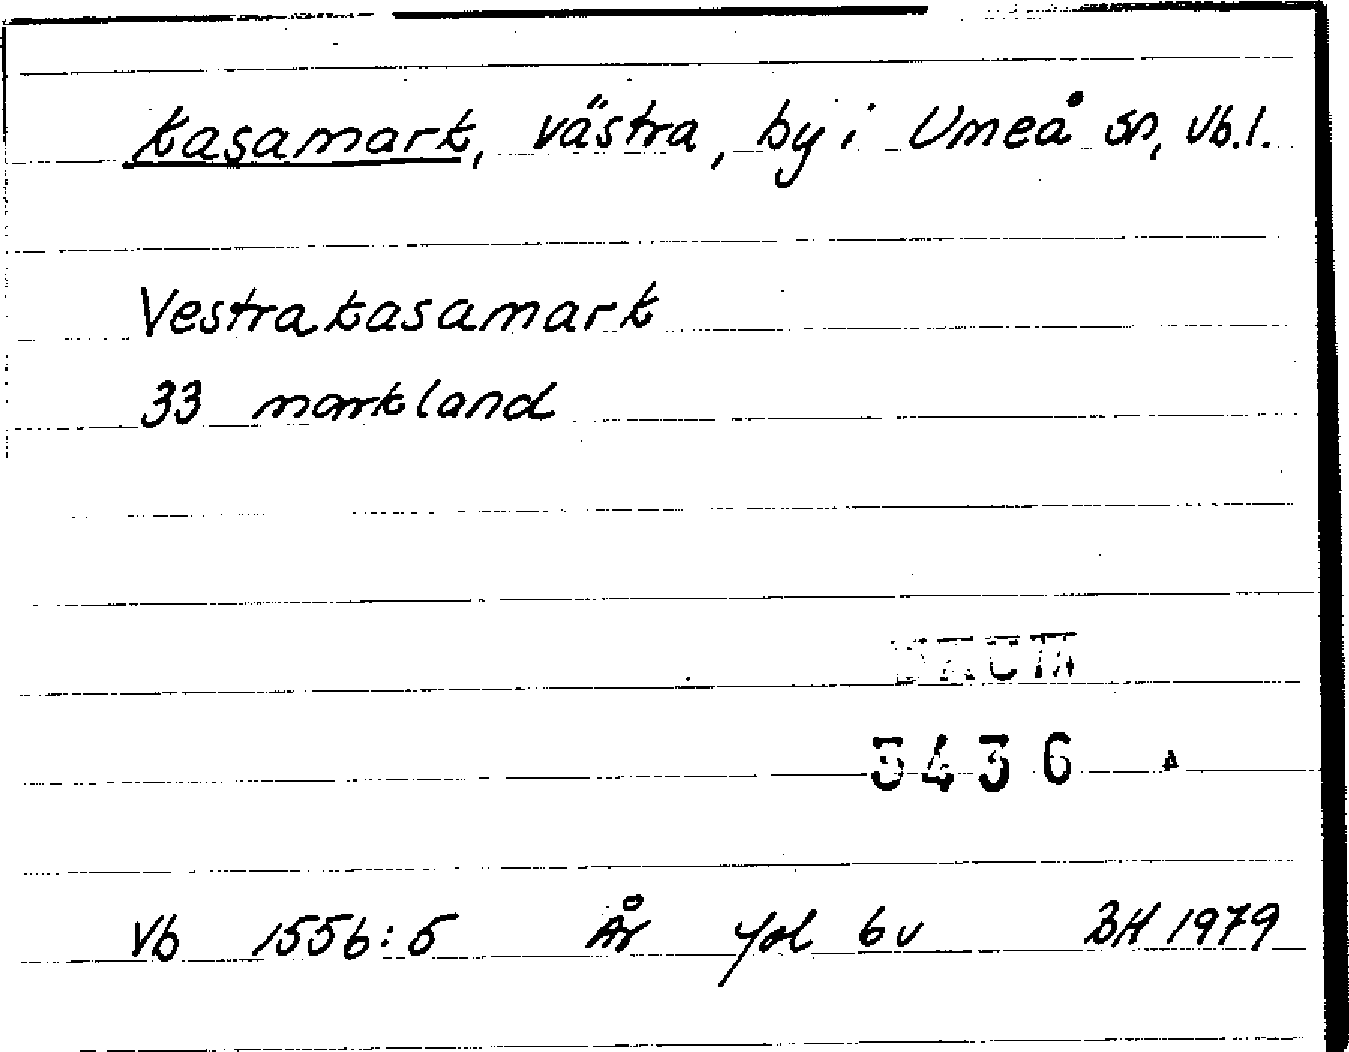 Kasamark, västra, by i Umeå sn, Vb.l.
Vestra kasamark
33 markland
5436 A
Vb 1556:5 År fol 6v BH 1979